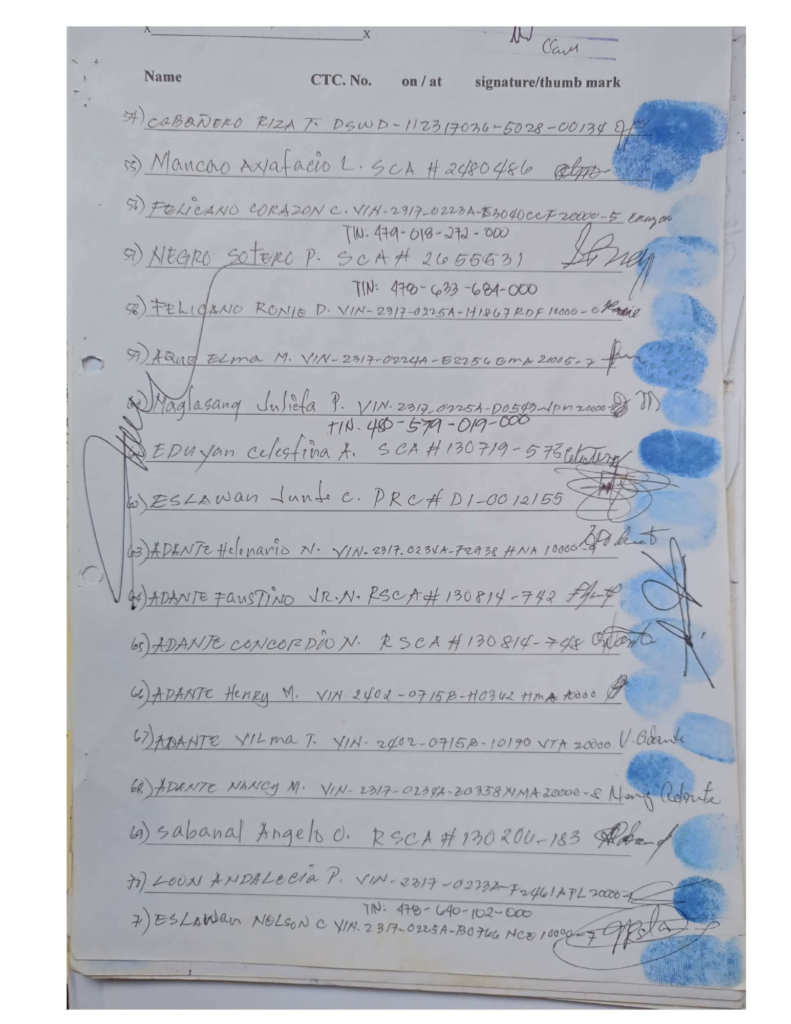 x x
Name CTC. No. on / at signature/thumb mark
54) CABAÑERO RIZA T. DSWD-112317036-5028-00134
55) Mancao Anafacio L. SCA # 2480486
56) FELICANO CORAZON C. VIN-2317-0223A-E3040CCF20000-5 Corazon
TIN: 479-018-272-000
57) NEGRO SOTERO P. SCA # 2655531
TIN: 478-633-684-000
58) FELICANO RONIE D. VIN-2317-0225A-H1867RDF10000-0
59) AQUE ELMA M. VIN-2317-0224A-E2256EMA20005-7
Maglasang Julieta P. VIN. 2317-0225A-D0543JPM20000
TIN. 480-579-019-000
EDUYAN Celestina A. SCA # 130719-573
62) ESLAWAN Junte C. PRC # D1-0012155
63) ADANTE Helenario N. VIN-2317.0234A-F2938HNA10000-9
64) ADANTE FAUSTINO JR. N. RSCA # 130814-742
65) ADANTE CONCORDIO N. RSCA # 130814-748
66) ADANTE Henry M. VIN 2402-0715B-H0362HMA10000
67) ADANTE VILMA T. VIN-2402-0715B-10190VTA20000 V. Adante
68) ADANTE NANCY M. VIN-2317-0234A-20358NMA20000-8 Nancy Adante
69) Sabanal Angelo O. RSCA # 130204-183
70) LOON ANDALECIA P. VIN-2317-0223A-F2461APL20000-
TIN: 478-640-102-000
71) ESLAWAN NELSON C VIN. 2317-0225A-B0766NCE10000-7